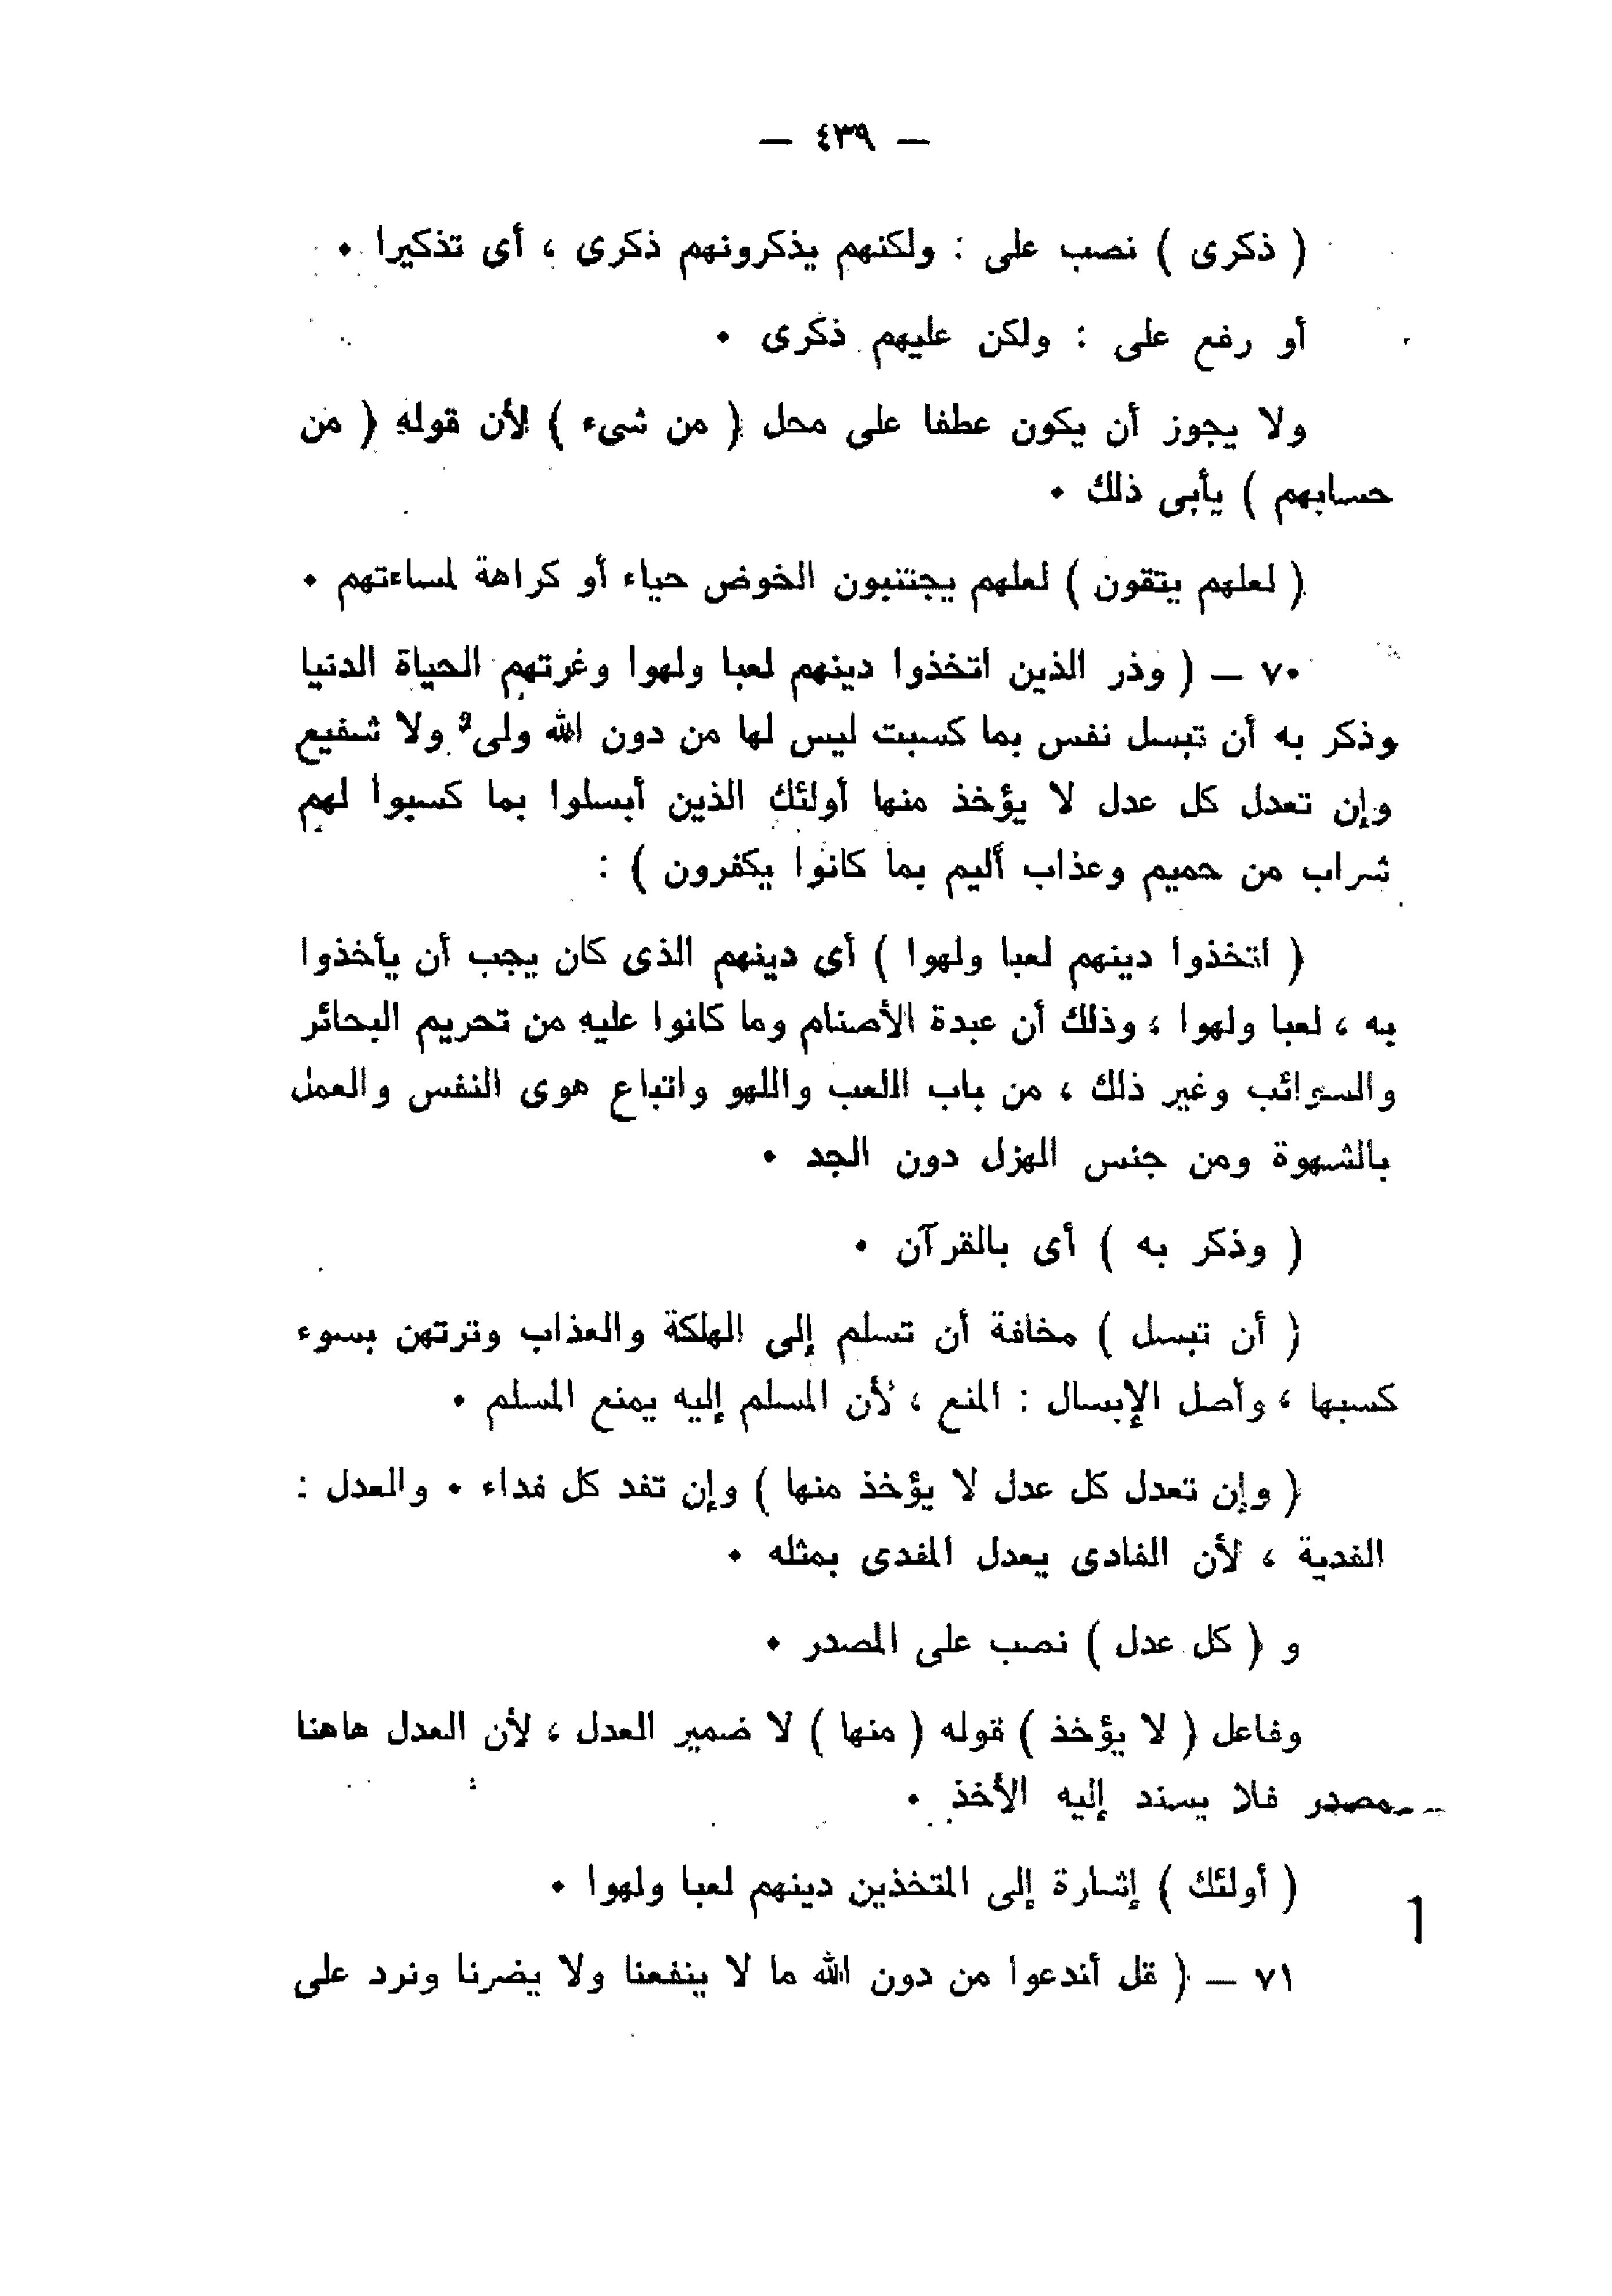 — ٤٣٩ —
( ذكرى ) نصب على : ولكنهم يذكرونهم ذكرى ، أى تذكيرا •
أو رفع على : ولكن عليهم ذكرى •
ولا يجوز أن يكون عطفا على محل ( من شىء ) لأن قوله ( من
حسابهم ) يأبى ذلك •
( لعلهم يتقون ) لعلهم يجتنبون الخوض حياء أو كراهة لمساءتهم •
٧٠ — ( وذر الذين اتخذوا دينهم لعبا ولهوا وغرتهم الحياة الدنيا
وذكر به أن تبسل نفس بما كسبت ليس لها من دون الله ولىٌ ولا شفيع
وإن تعدل كل عدل لا يؤخذ منها أولئك الذين أبسلوا بما كسبوا لهم
شراب من حميم وعذاب أليم بما كانوا يكفرون ) :
( اتخذوا دينهم لعبا ولهوا ) أى دينهم الذى كان يجب أن يأخذوا
به ، لعبا ولهوا ، وذلك أن عبدة الأصنام وما كانوا عليه من تحريم البحائر
والسوائب وغير ذلك ، من باب اللعب واللهو واتباع هوى النفس والعمل
بالشهوة ومن جنس الهزل دون الجد •
( وذكر به ) أى بالقرآن •
( أن تبسل ) مخافة أن تسلم إلى الهلكة والعذاب وترتهن بسوء
كسبها ، وأصل الإبسال : المنع ، لأن المسلم إليه يمنع المسلم •
( وإن تعدل كل عدل لا يؤخذ منها ) وإن تفد كل فداء • والعدل :
الفدية ، لأن الفادى يعدل المفدى بمثله •
و ( كل عدل ) نصب على المصدر •
وفاعل ( لا يؤخذ ) قوله ( منها ) لا ضمير العدل ، لأن العدل هاهنا
مصدر فلا يسند إليه الأخذ •
( أولئك ) إشارة إلى المتخذين دينهم لعبا ولهوا •
٧١ — ( قل أندعوا من دون الله ما لا ينفعنا ولا يضرنا ونرد على